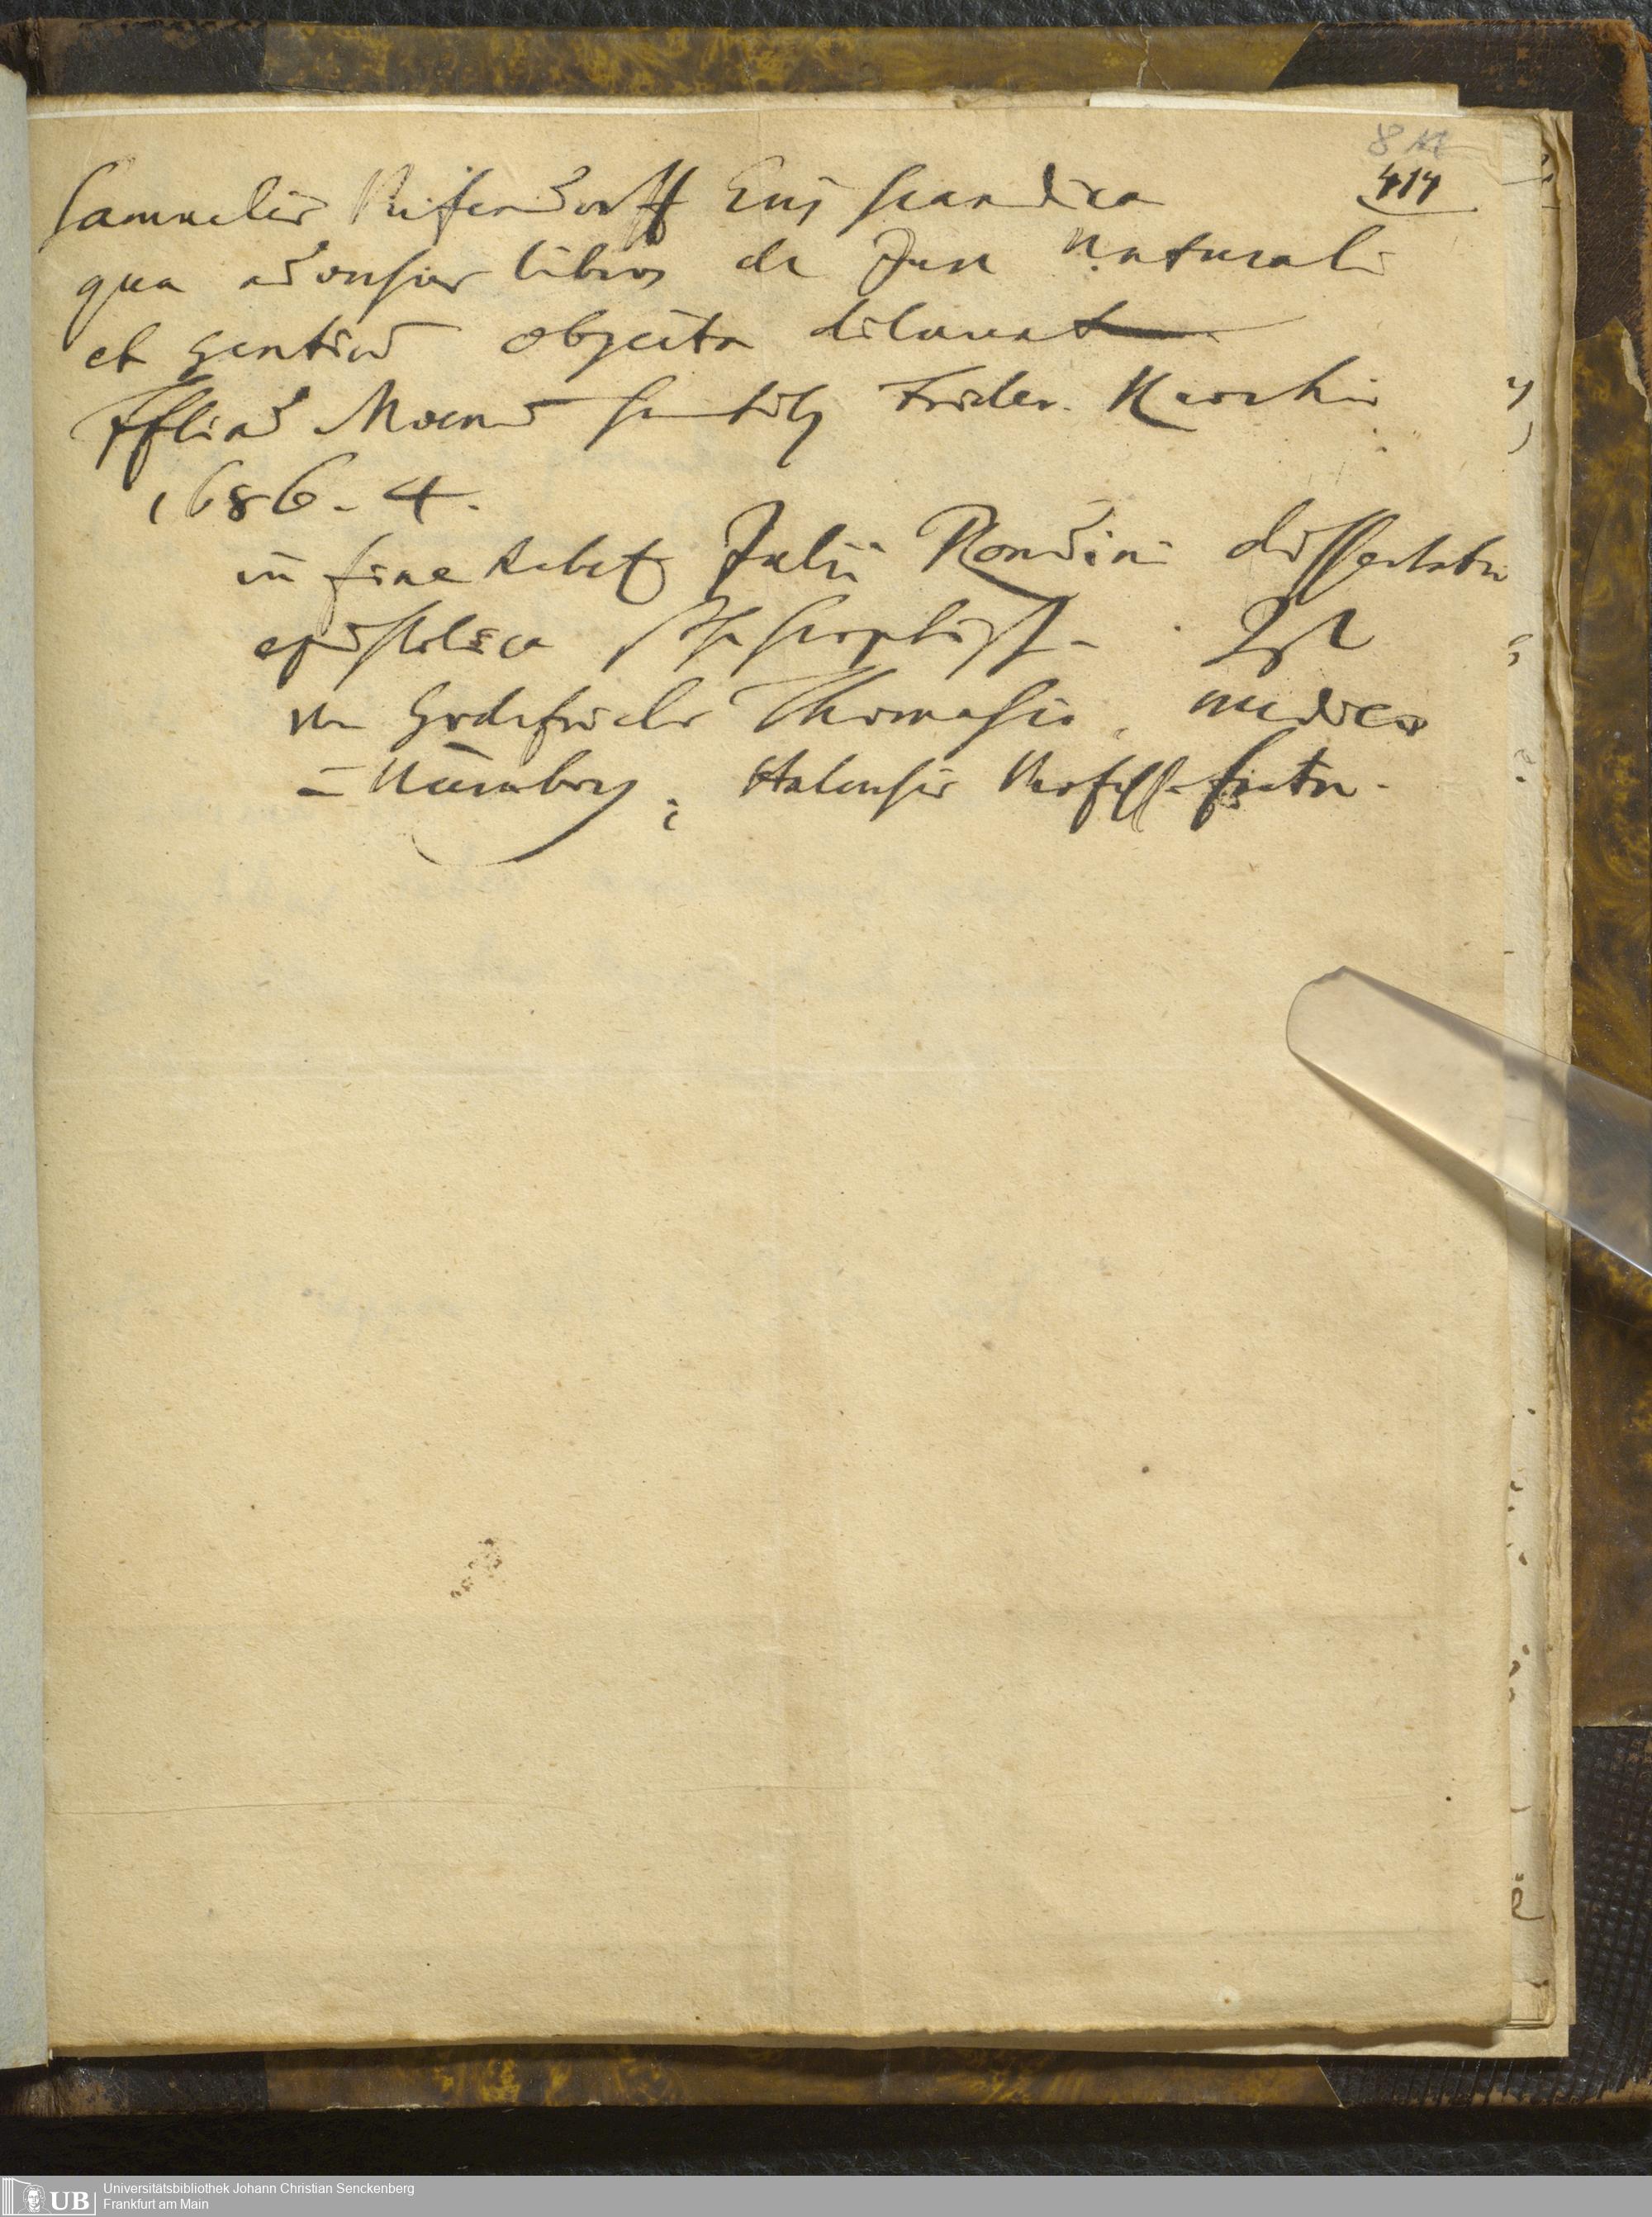 8
414
Samuelis Pufendorff Eris scandica
qua adversus libros de Jure naturali
et gentium objecta diluuntur
Ffti ad Moenum sumtibus Frider. Knochii
1686. 4.
in fine habet Julii Rondini dissertatio
epistolica
Godefrido Thomasio, medico
Nürnberg, Halensis Profess. fratre.
UB
Universitätsbibliothek Johann Christian Senckenberg
Frankfurt am Main